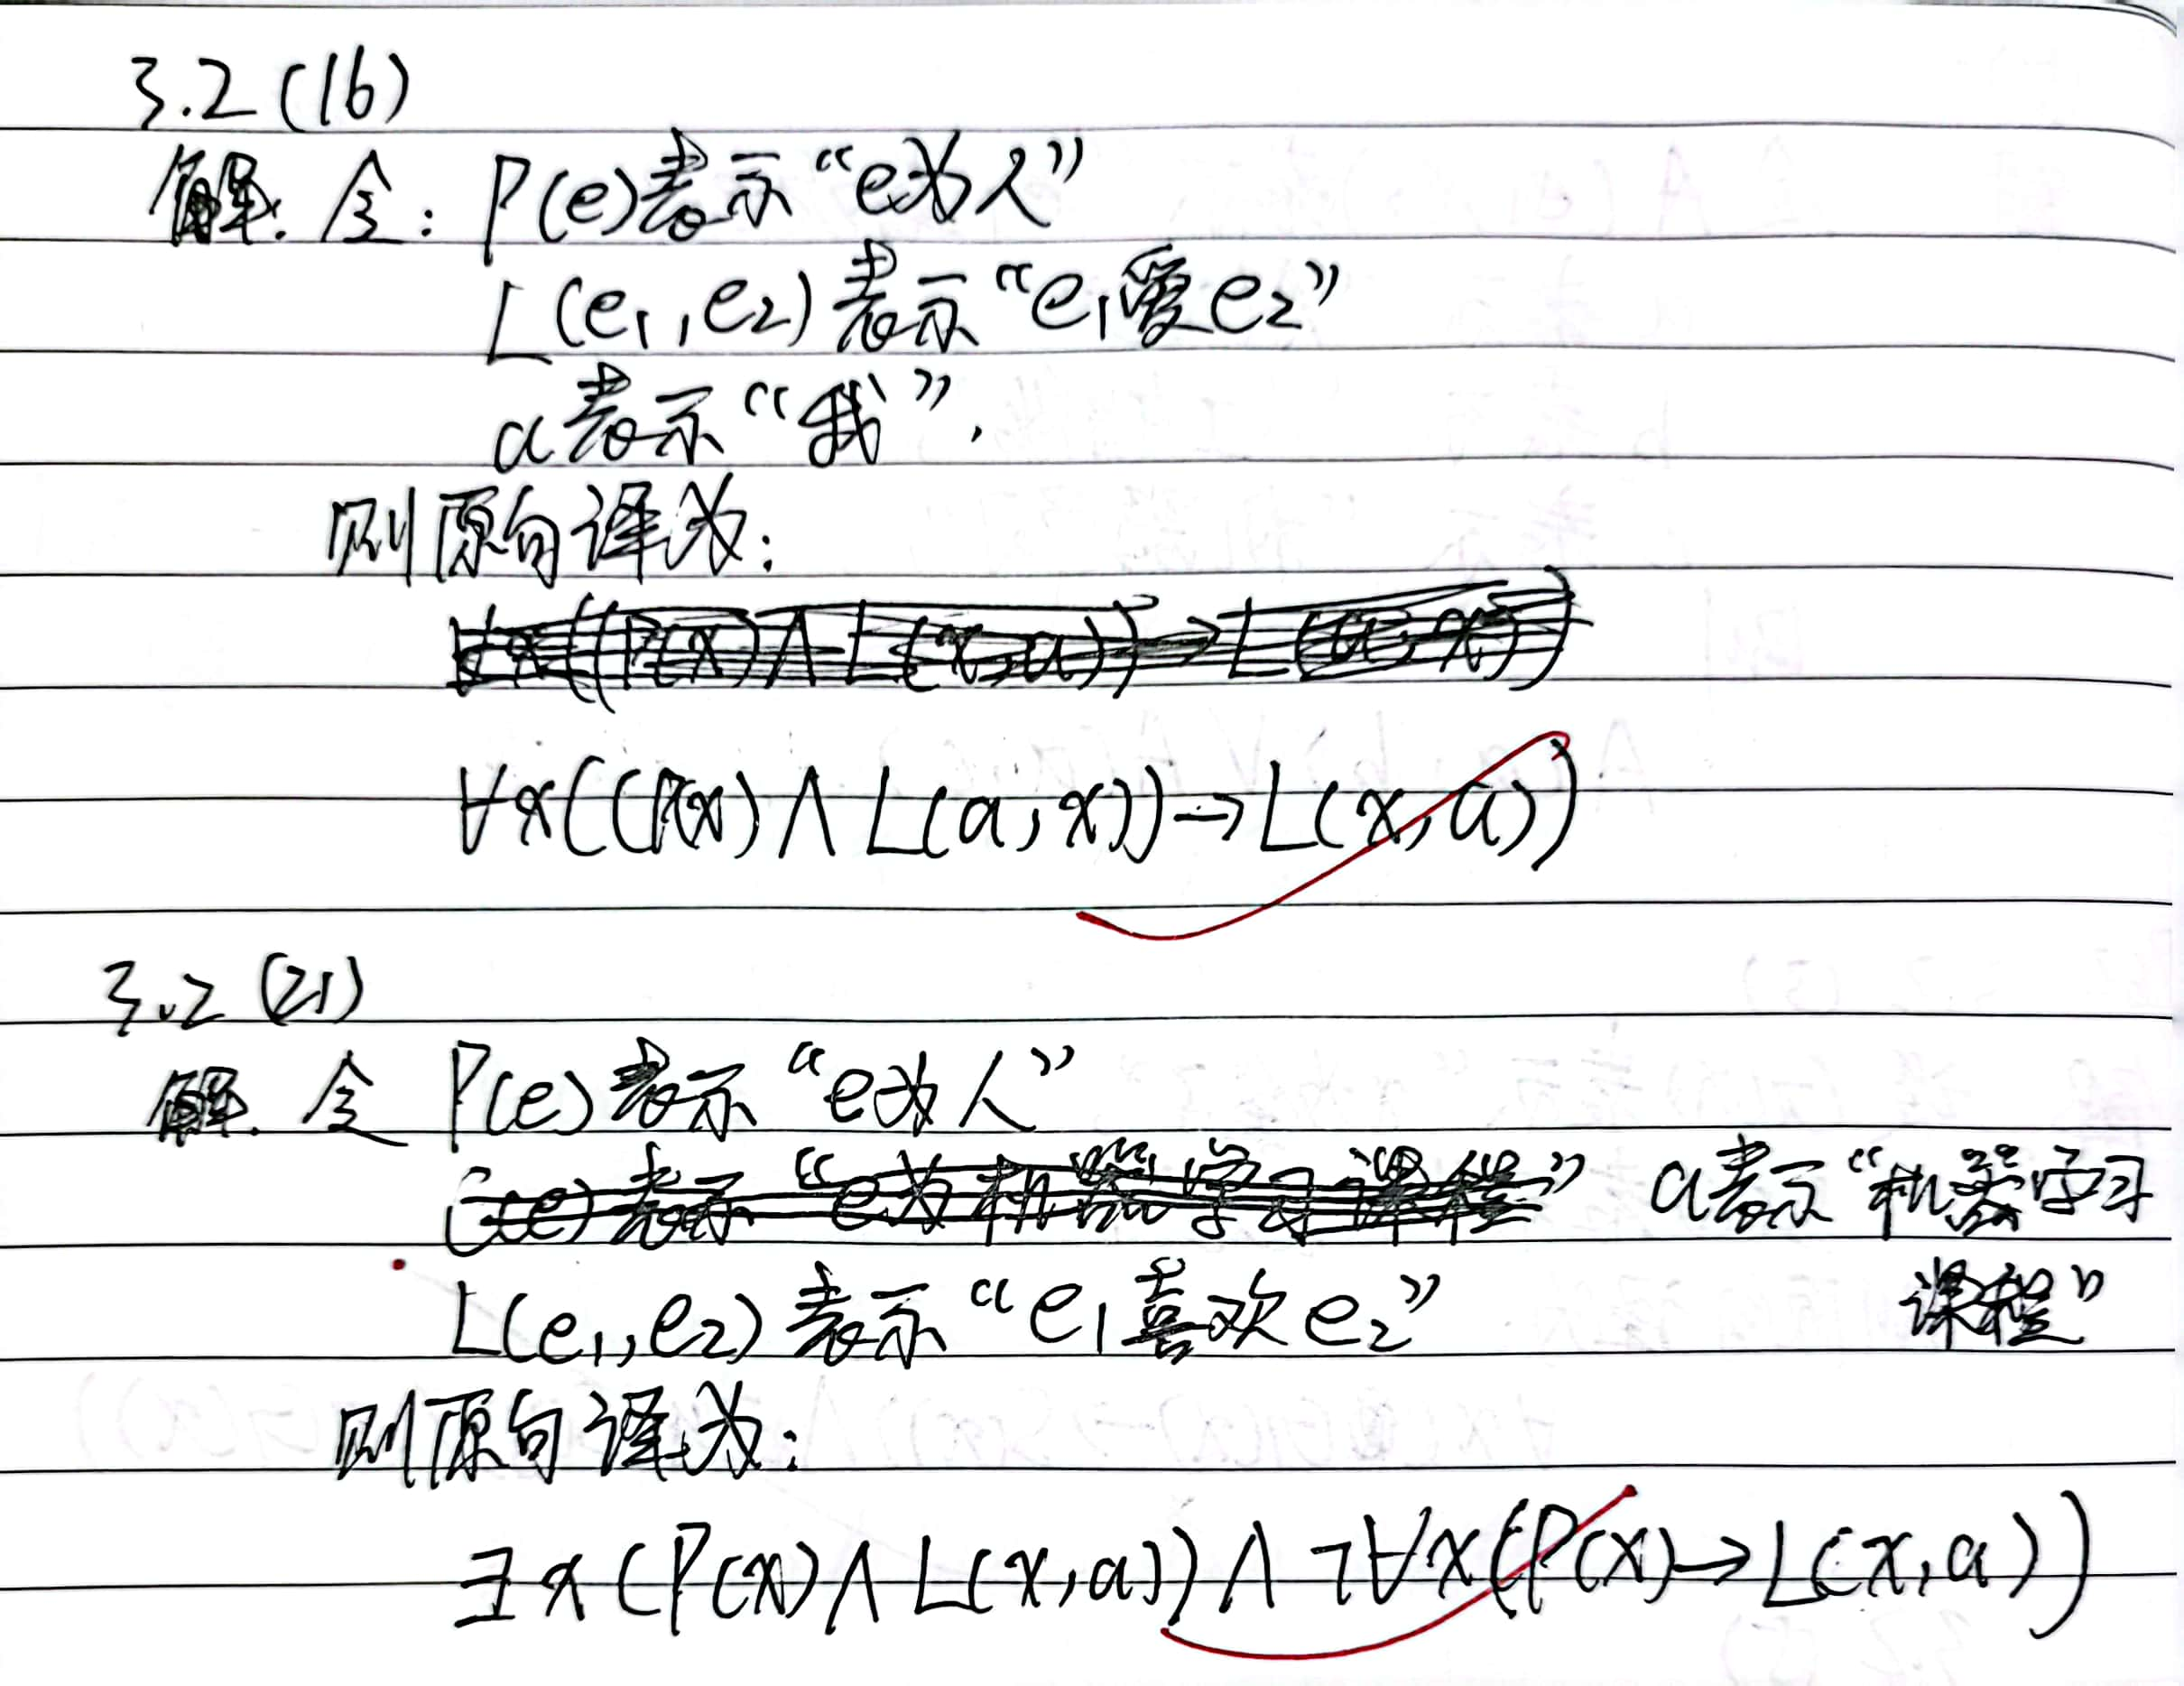 3.2 (16)
解. 令: P(e)表示“e为人”
L(e₁,e₂)表示“e₁爱e₂”
a表示“我”.
则原句译为:
∀x((P(x)∧L(x,a))→L(a,x))
∀x((P(x)∧L(a,x))→L(x,a))
3.2 (21)
解. 令 P(e)表示“e为人”
C(e)表示“e为机器学习课程” a表示“机器学习
课程”
L(e₁,e₂)表示“e₁喜欢e₂”
则原句译为:
∃x(P(x)∧L(x,a))∧¬∀x(P(x)→L(x,a))